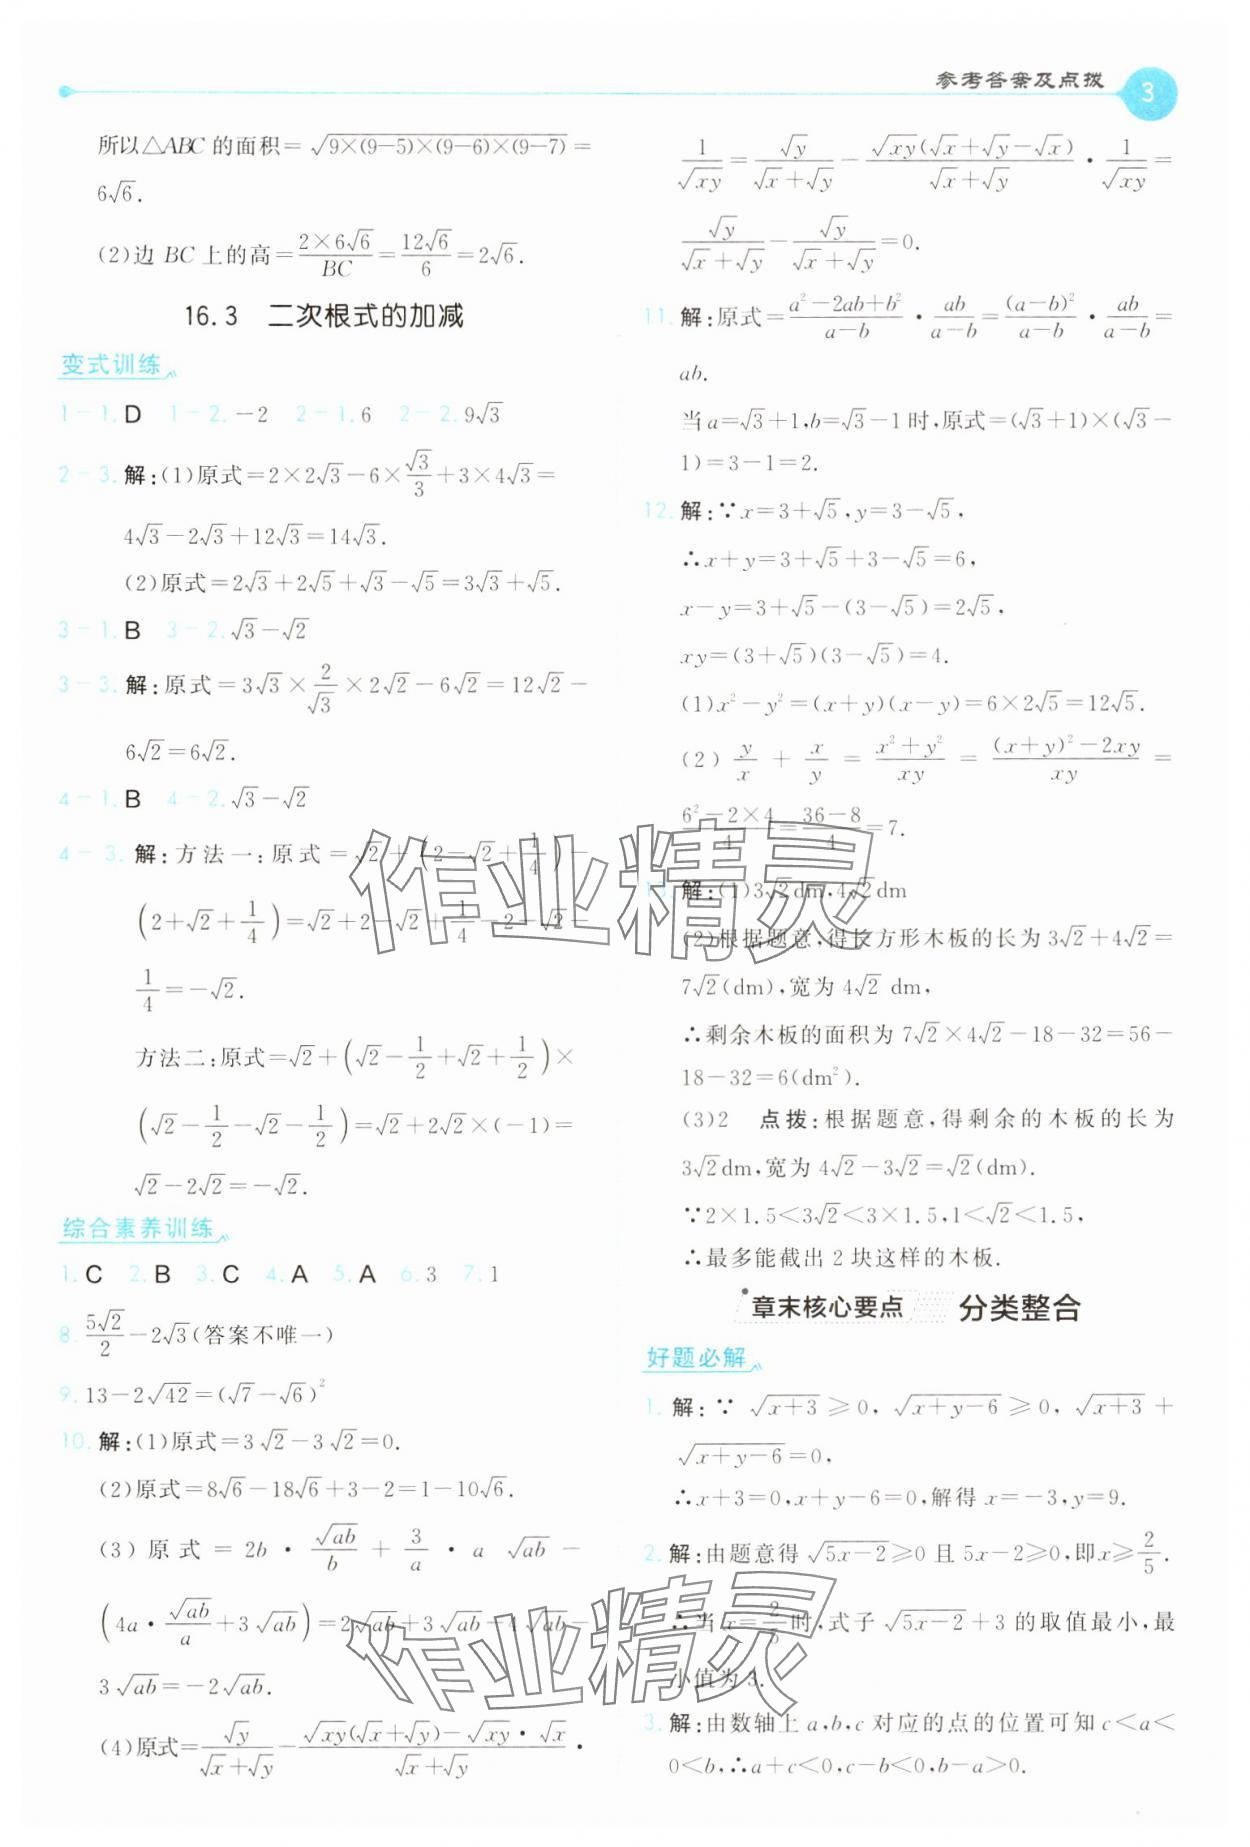 参考答案及点拨 3
所以△ABC 的面积=√(9×(9−5)×(9−6)×(9−7))=
6√6.
(2)边 BC 上的高=(2×6√6)/BC=(12√6)/6=2√6.
16.3 二次根式的加减
变式训练
1−1. D 1−2. −2 2−1. 6 2−2. 9√3
2−3. 解:(1)原式=2×2√3−6×(√3/3)+3×4√3=
4√3−2√3+12√3=14√3.
(2)原式=2√3+2√5+√3−√5=3√3+√5.
3−1. B 3−2. √3−√2
3−3. 解:原式=3√3×(2/√3)×2√2−6√2=12√2−
6√2=6√2.
4−1. B 4−2. √3−√2
4−3. 解:方法一:原式=√2+(2−√2+1/4)−
(2+√2+1/4)=√2+2−√2+1/4−2−√2−
1/4=−√2.
方法二:原式=√2+(√2−1/2+√2+1/2)×
(√2−1/2−√2−1/2)=√2+2√2×(−1)=
√2−2√2=−√2.
综合素养训练
1. C 2. B 3. C 4. A 5. A 6. 3 7. 1
8. (5√2)/2−2√3(答案不唯一)
9. 13−2√42=(√7−√6)²
10. 解:(1)原式=3√2−3√2=0.
(2)原式=8√6−18√6+3−2=1−10√6.
(3)原式=2b·(√ab)/b+(3/a)·a√ab−
(4a·(√ab)/a+3√ab)=2√ab+3√ab−4√ab−
3√ab=−2√ab.
(4)原式=√y/(√x+√y)−(√xy(√x+√y)−√xy·√x)/(√x+√y)·
1/√xy=√y/(√x+√y)−(√xy(√x+√y−√x))/(√x+√y)·1/√xy=
√y/(√x+√y)−√y/(√x+√y)=0.
11. 解:原式=(a²−2ab+b²)/(a−b)·ab/(a−b)=(a−b)²/(a−b)·ab/(a−b)=
ab.
当a=√3+1,b=√3−1时,原式=(√3+1)×(√3−
1)=3−1=2.
12. 解:∵x=3+√5,y=3−√5,
∴x+y=3+√5+3−√5=6,
x−y=3+√5−(3−√5)=2√5,
xy=(3+√5)(3−√5)=4.
(1)x²−y²=(x+y)(x−y)=6×2√5=12√5.
(2)y/x+x/y=(x²+y²)/xy=((x+y)²−2xy)/xy=
(6²−2×4)/4=(36−8)/4=7.
13. 解:(1)3√2dm,4√2dm
(2)根据题意,得长方形木板的长为3√2+4√2=
7√2(dm),宽为4√2 dm,
∴剩余木板的面积为7√2×4√2−18−32=56−
18−32=6(dm²).
(3)2 点拨:根据题意,得剩余的木板的长为
3√2dm,宽为4√2−3√2=√2(dm).
∵2×1.5<3√2<3×1.5,1<√2<1.5,
∴最多能截出2块这样的木板.
章末核心要点 分类整合
好题必解
1. 解:∵√(x+3)≥0,√(x+y−6)≥0,√(x+3)+
√(x+y−6)=0,
∴x+3=0,x+y−6=0,解得x=−3,y=9.
2. 解:由题意得√(5x−2)≥0且5x−2≥0,即x≥2/5.
∴当x=2/5时,式子√(5x−2)+3的取值最小,最
小值为3.
3. 解:由数轴上a,b,c对应的点的位置可知c<a<
0<b,∴a+c<0,c−b<0,b−a>0.
作业精灵
作业精灵